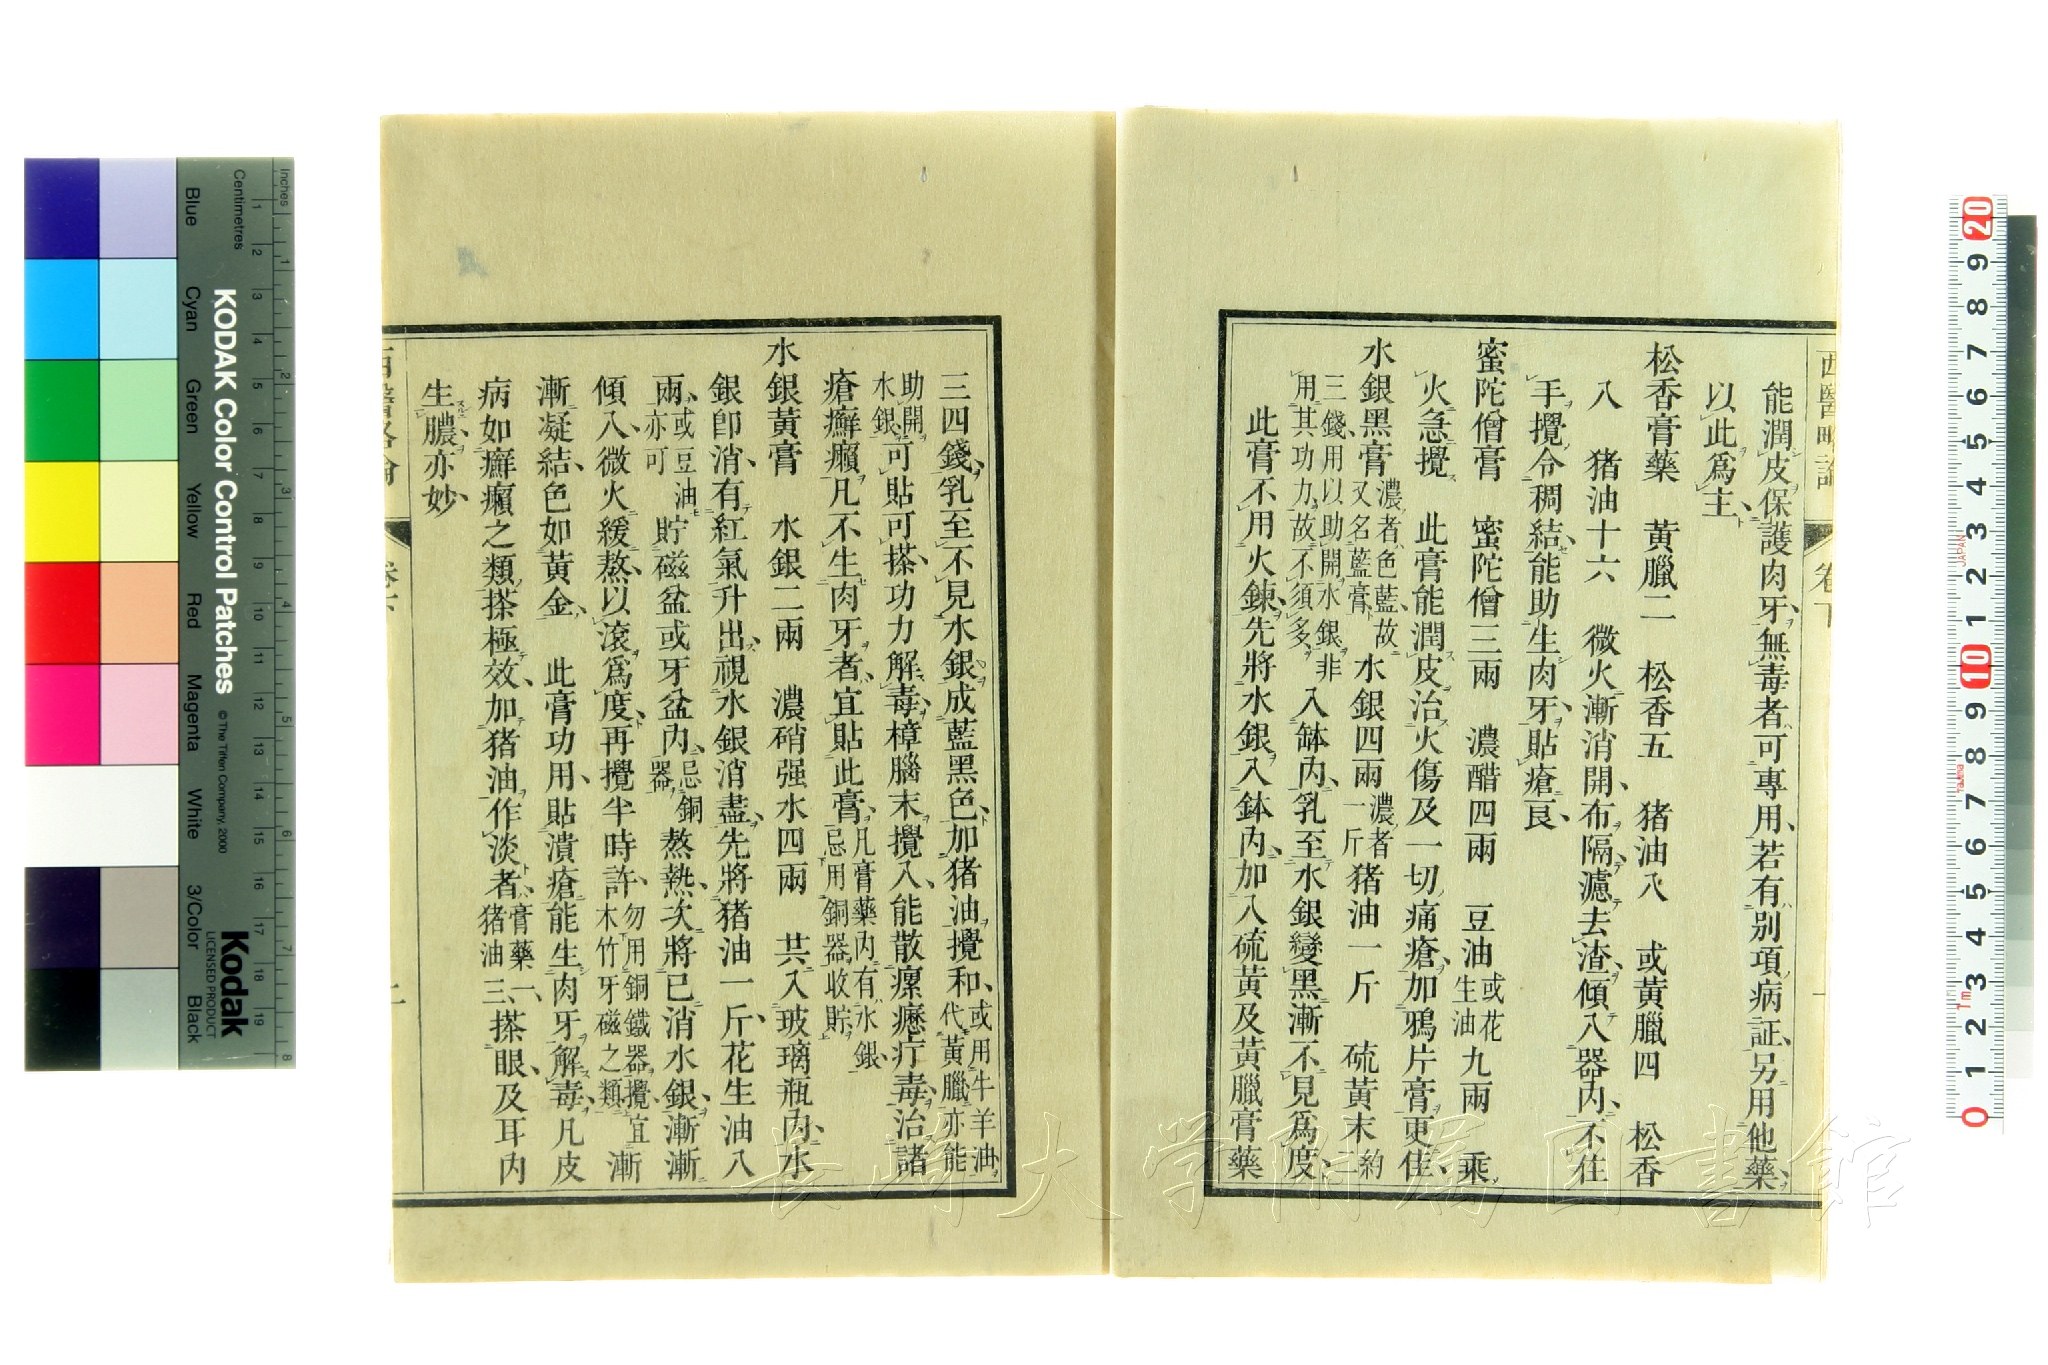 西醫略論
卷下
能潤皮保護肉牙、無毒者可專用、若有別項病証、另用他藥、
以此爲主、
松香膏藥　黃臘二　松香五　猪油八　或黃臘四　松香
八　猪油十六　微火漸消開、布隔濾去渣、傾入器內、不住
手攪令稠結、能助生肉牙、貼瘡良、
蜜陀僧膏　蜜陀僧三兩　濃醋四兩　豆油或花生油九兩　乘
火急攪　此膏能潤皮治火傷及一切痛瘡、加鴉片膏更佳、
水銀黑膏濃者色藍、故又名藍膏　水銀四兩濃者一斤猪油一斤　硫黃末約
三錢、用以助開水銀、非用其功力、故不須多　入缽內、乳至水銀變黑漸不見爲度、
此膏不用火鍊、先將水銀入鉢內、加入硫黃及黃臘膏藥
三四錢、乳至不見水銀、成藍黑色、加猪油攪和、或用牛羊油代、黃臘亦能
助開水銀可貼可搽、功力解毒、樟腦末攪入、能散瘰癧疔毒、治諸
瘡癬癩、凡不生肉牙者、宜貼此膏、凡膏藥內有水銀、忌用銅器收貯、
水銀黃膏　水銀二兩　濃硝强水四兩　共入玻璃瓶內、水
銀卽消、有紅氣升出、視水銀消盡、先將猪油一斤、花生油八
兩、或豆油亦可　貯磁盆或牙盆內、忌銅器、熬熱、次將已消水銀、漸漸
傾入、微火緩熬、以滾爲度、再攪半時許、勿用銅鐵器攪、宜木竹牙磁之類　漸
漸凝結、色如黃金、　此膏功用、貼潰瘡能生肉牙解毒、凡皮
病如癬癩之類、搽極效、加猪油作淡者、膏藥一、猪油三、搽眼、及耳內
生膿、亦妙、
西醫略論
卷下
二
inches
Centimetres
Blue
Cyan
Green
Yellow
Red
Magenta
White
3/Color
Black
KODAK Color Control Patches
© The Tiffen Company, 2000
Kodak
LICENSED PRODUCT
20
9
8
7
6
5
4
3
2
1
10
9
8
7
6
5
4
3
2
1
0
JAPAN
長崎大学附属図書館